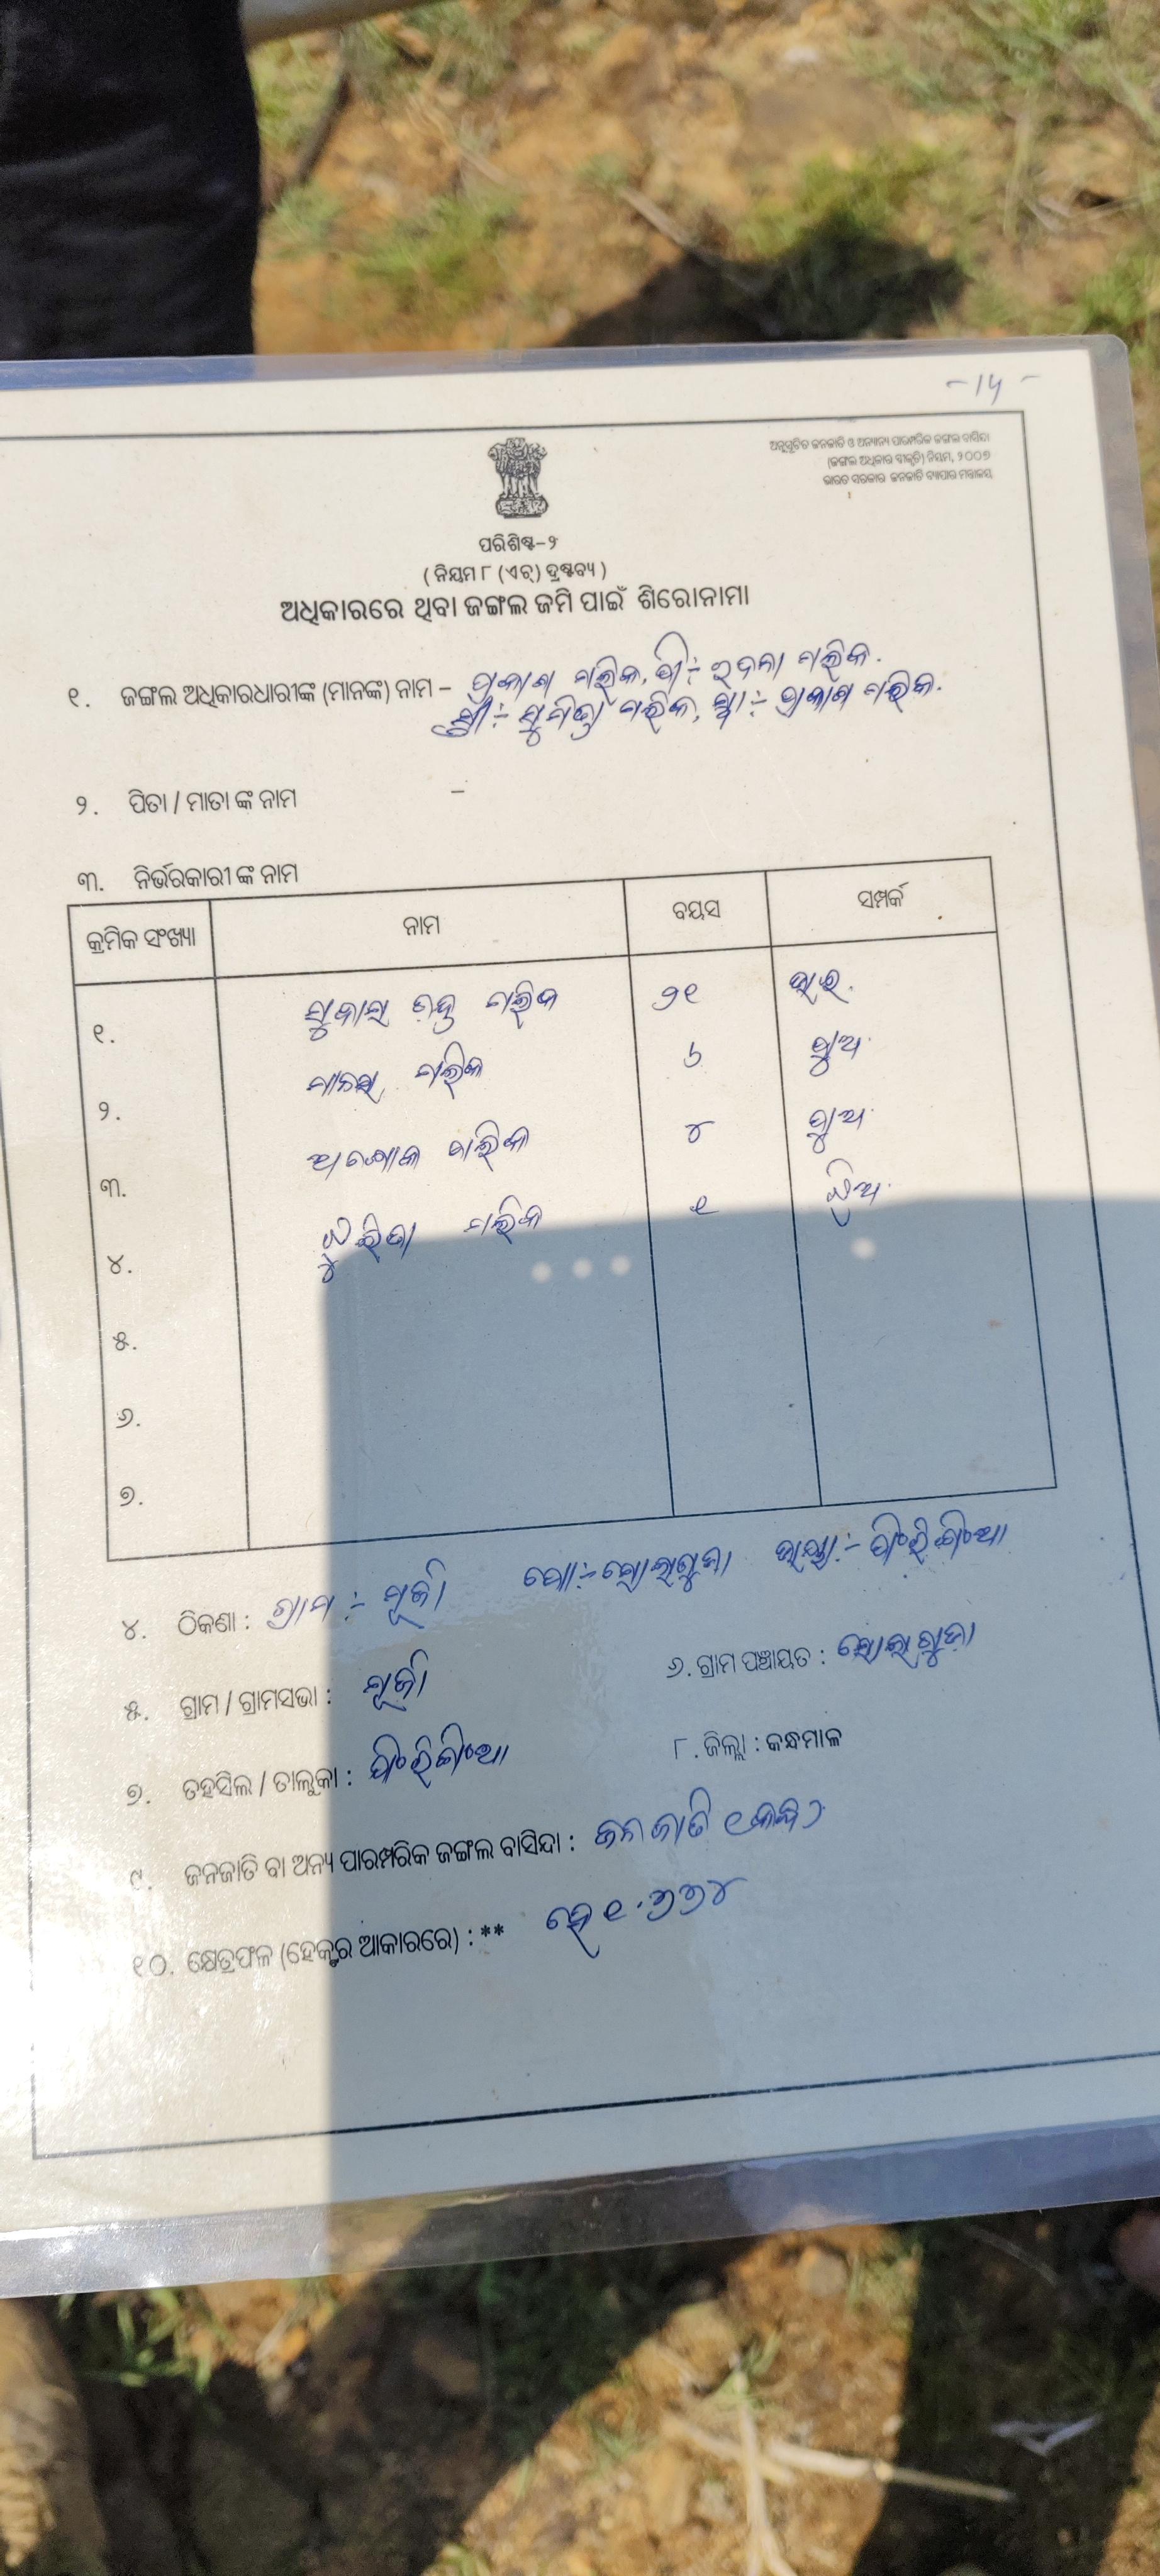 -14-
ଅନୁସୂଚିତ ଜନଜାତି ଓ ଅନ୍ୟାନ୍ୟ ପାରମ୍ପରିକ ଜଙ୍ଗଲ ବାସିନ୍ଦା
(ଜଙ୍ଗଲ ଅଧିକାର ସ୍ୱୀକୃତି) ନିୟମ, ୨୦୦୭
ଭାରତ ସରକାର ଜନଜାତି ବ୍ୟାପାର ମନ୍ତ୍ରାଳୟ
ପରିଶିଷ୍ଟ-୨
( ନିୟମ ୮ (ଏଚ୍) ଦ୍ରଷ୍ଟବ୍ୟ )
ଅଧିକାରରେ ଥିବା ଜଙ୍ଗଲ ଜମି ପାଇଁ ଶିରୋନାମା
୧. ଜଙ୍ଗଲ ଅଧିକାରଧାରୀଙ୍କ (ମାନଙ୍କ) ନାମ - ପ୍ରକାଶ ମଲ୍ଲିକ, ପି:- ମଲ୍ଲିକ.
ସ୍ତ୍ରୀ:- ସୁମିତ୍ରା ମଲ୍ଲିକ, ସ୍ୱା:- ପ୍ରକାଶ ମଲ୍ଲିକ.
୨. ପିତା / ମାତା ଙ୍କ ନାମ -
୩. ନିର୍ଭରକାରୀ ଙ୍କ ନାମ
କ୍ରମିକ ସଂଖ୍ୟା ନାମ ବୟସ ସମ୍ପର୍କ
୧. ମଲ୍ଲିକ ୨୧ ଭାଇ.
୨. ମାନସ ମଲ୍ଲିକ ୬ ପୁଅ.
୩. ଅଶୋକ ମଲ୍ଲିକ ୪ ପୁଅ.
୪. ମଲ୍ଲିକ ୧ ଝିଅ.
୫.
୬.
୭.
୪. ଠିକଣା : ଗ୍ରାମ :- ପୋ:- ଭାୟା:- ଫିରିଙ୍ଗିଆ
୫. ଗ୍ରାମ / ଗ୍ରାମସଭା :
୬. ଗ୍ରାମ ପଞ୍ଚାୟତ :
୭. ତହସିଲ / ତାଲୁକା : ଫିରିଙ୍ଗିଆ
୮. ଜିଲ୍ଲା : କନ୍ଧମାଳ
୯. ଜନଜାତି ବା ଅନ୍ୟ ପାରମ୍ପରିକ ଜଙ୍ଗଲ ବାସିନ୍ଦା : ଜନଜାତି (କନ୍ଧ)
୧୦. କ୍ଷେତ୍ରଫଳ (ହେକ୍ଟର ଆକାରରେ) : ** ହେ